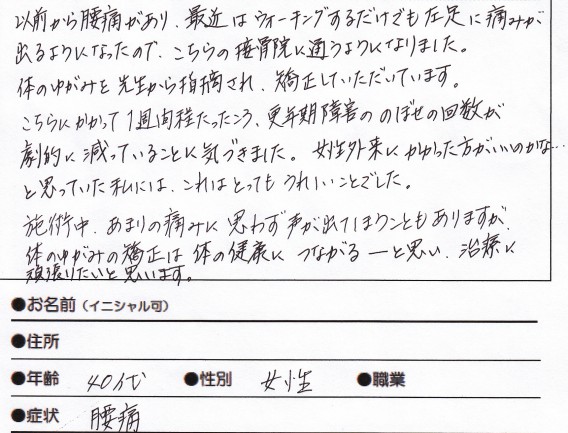 以前から腰痛があり、最近はウォーキングするだけでも左足に痛みが
出るようになったので、こちらの接骨院に通うようになりました。
体のゆがみを先生から指摘され、矯正していただいています。
こちらにかかって1週間程たったころ、更年期障害ののぼせの回数が
劇的に減っていることに気づきました。女性外来にかかった方がいいのかな…
と思っていた私には、これはとってもうれしいことでした。
施術中、あまりの痛みに思わず声が出てしまうこともありますが、
体のゆがみの矯正は体の健康につながる―と思い、治療に
頑張りたいと思います。
●お名前（イニシャル可）
●住所
●年齢 40代 ●性別 女性 ●職業
●症状 腰痛